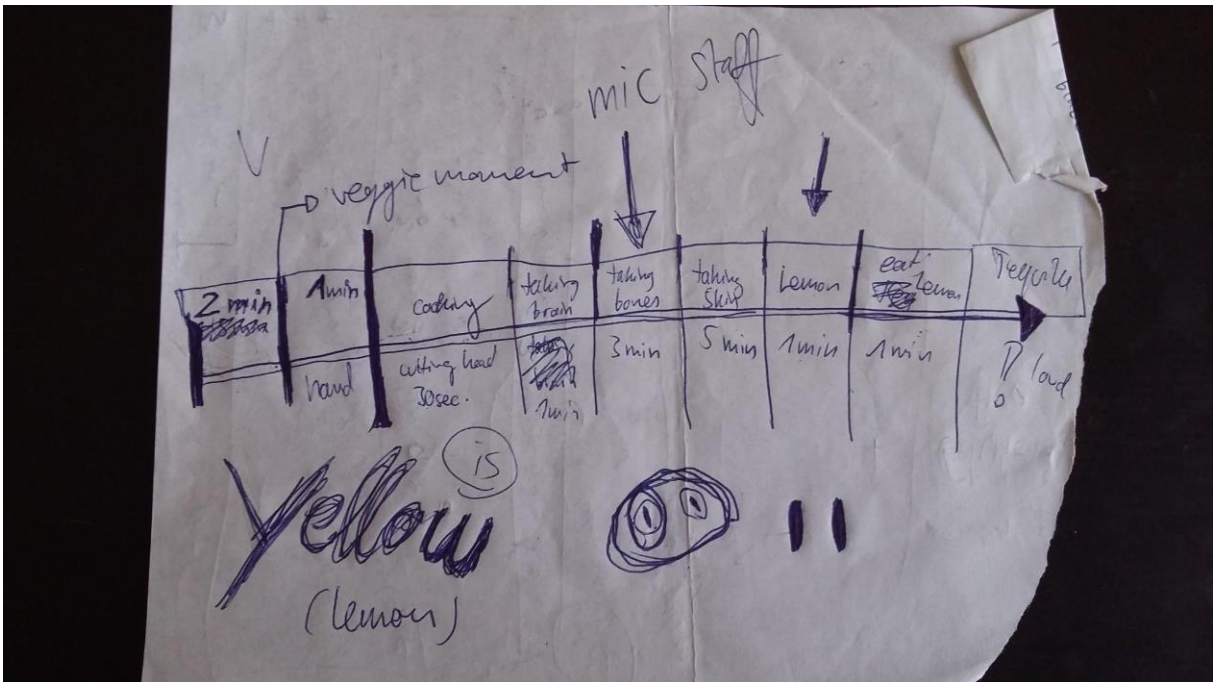 mic staff
V
veggie moment
2 min
1min
hand
cooking
cutting head
30sec.
taking
brain
1min
taking
bones
3 min
taking
skin
5 min
Lemon
1min
eat
Lemon
1 min
loud
Yellow
is
(lemon)